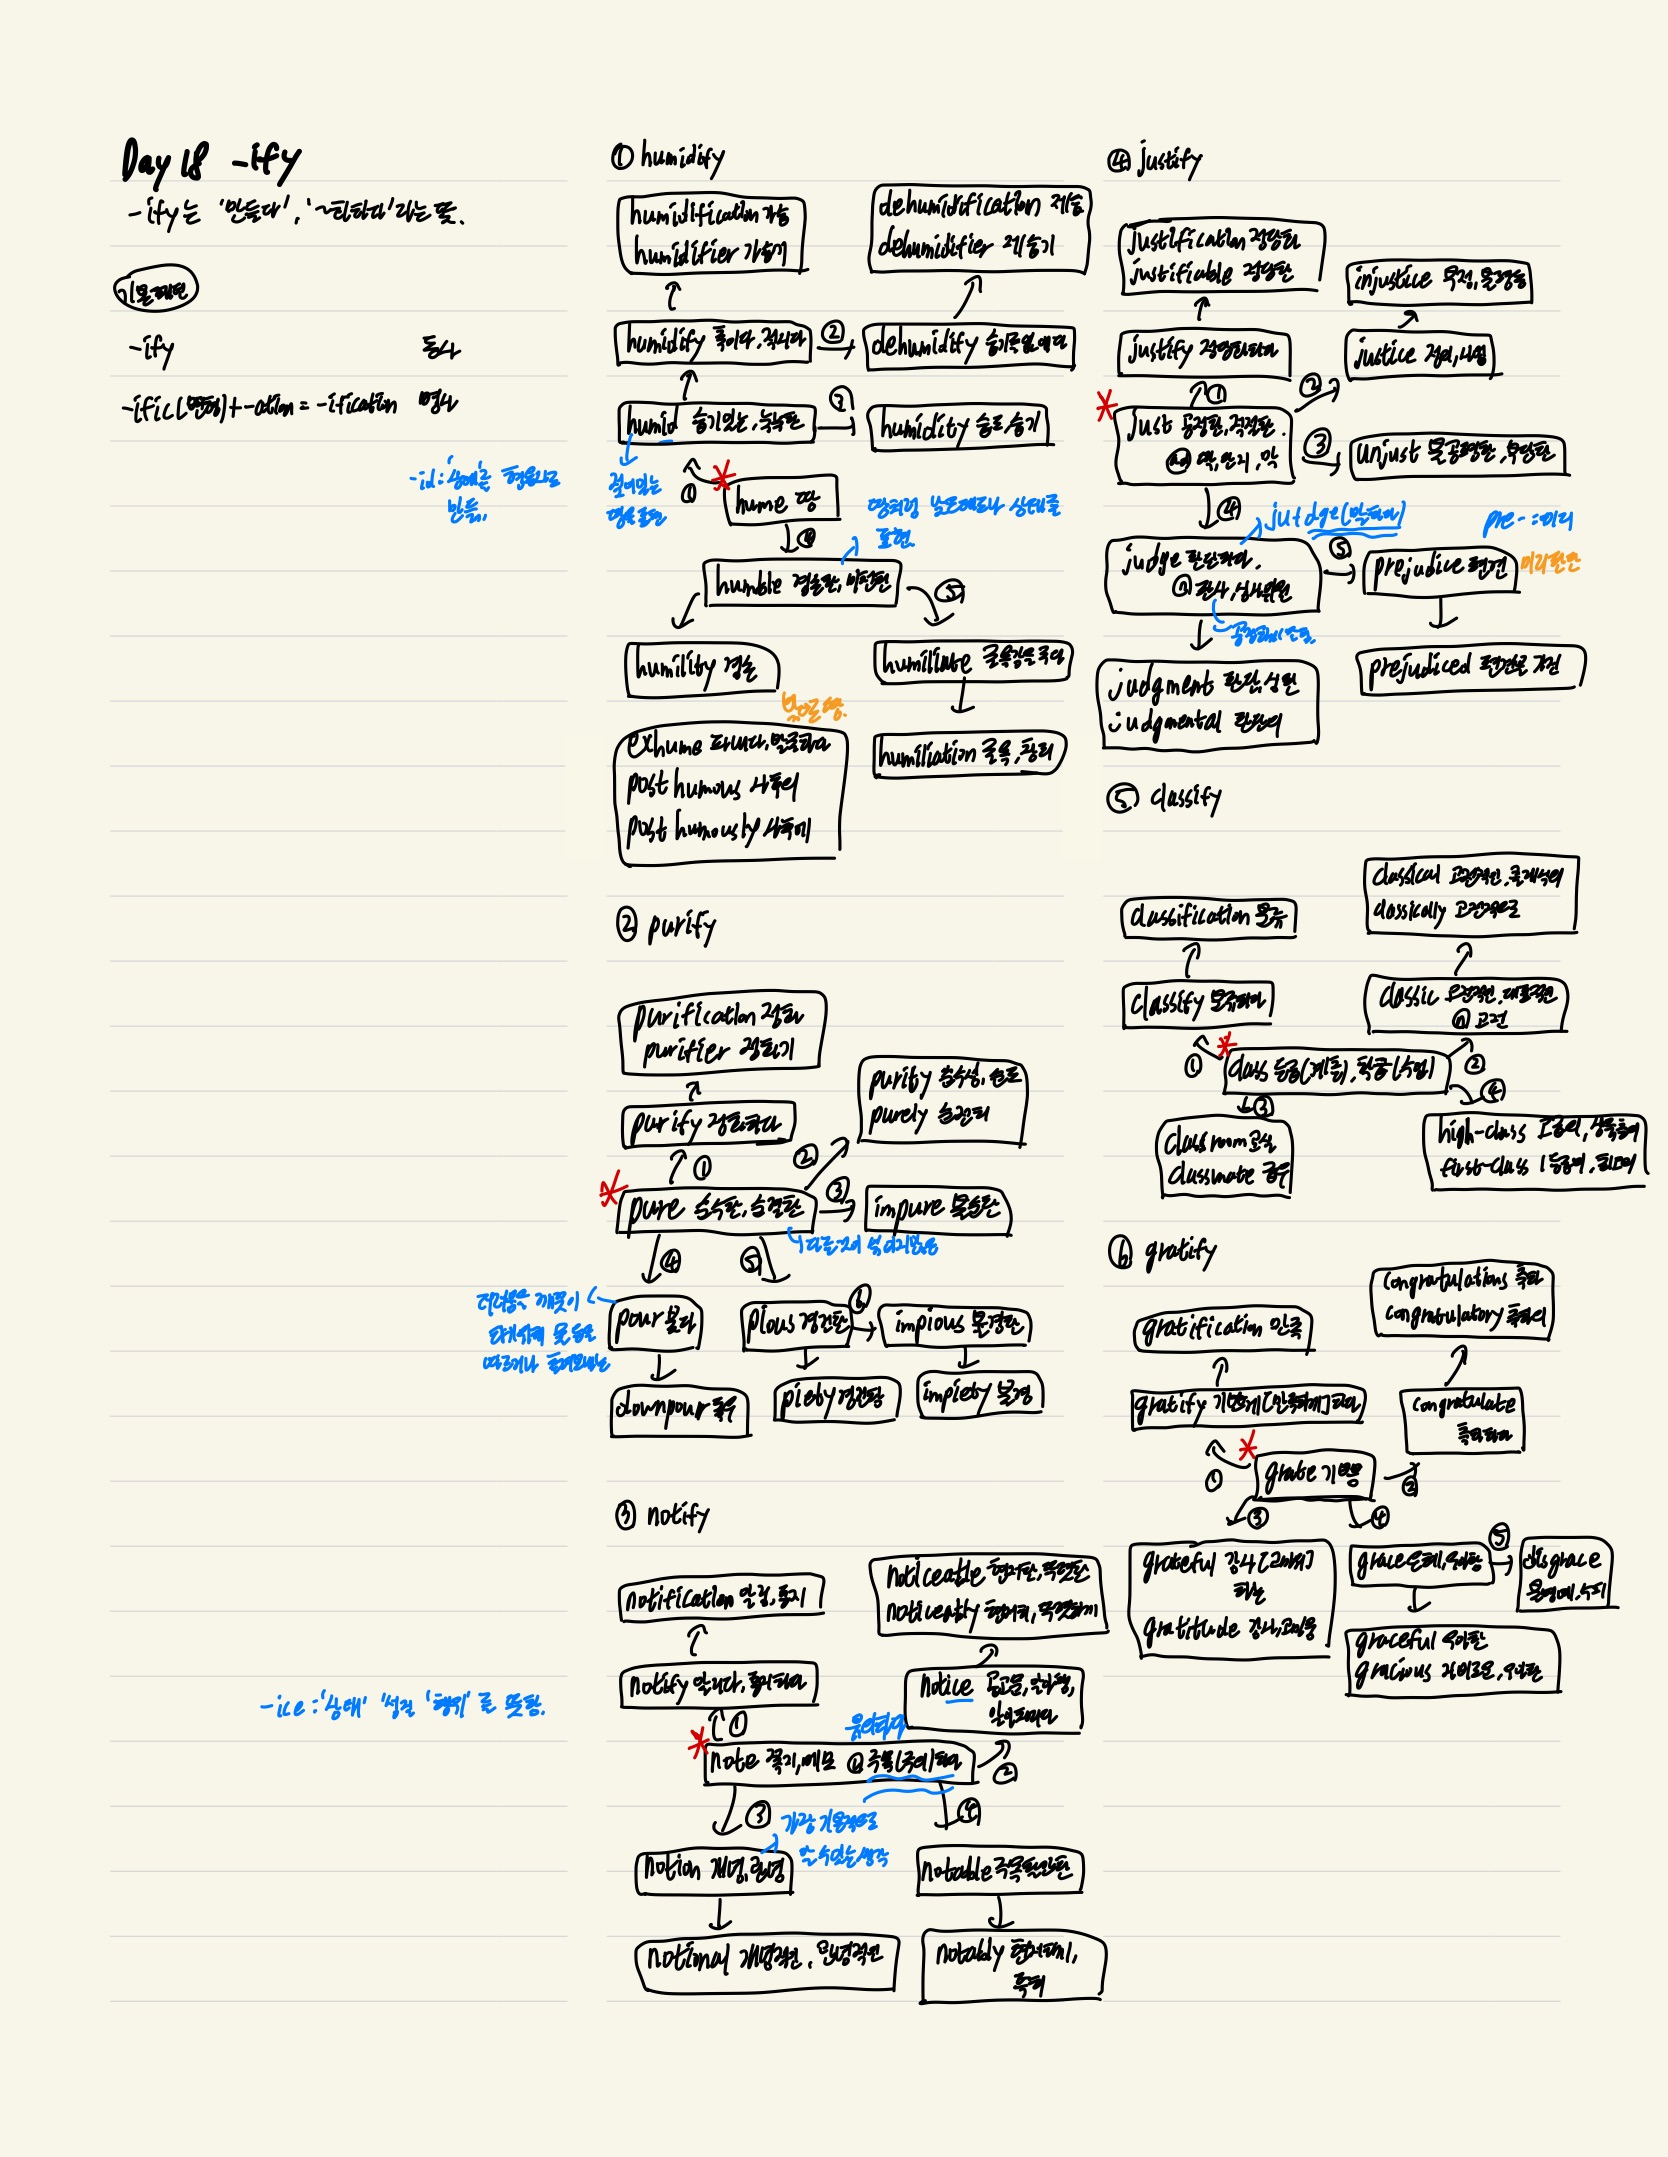 Day 18 -ify
-ify는 '만들다', '~화하다'라는 뜻.
기본패턴
-ify 동사
-ific(변형)+-ation = -ification 명사
-id: '상태'를 형용사로
만듦.
-ice: '상태' '성질' '행위'를 뜻함.
① humidify
humidification 가습
humidifier 가습기
dehumidification 제습
dehumidifier 제습기
humidify 축이다, 적시다
②
dehumidify 습기를 없애다
humid 습기있는, 눅눅한
③
humidity 습도, 습기
젖어있는
땅으로부터
①
hume 땅
땅처럼 낮은 태도나 상태를
표현.
④
humble 겸손한, 미천한
⑤
humility 겸손
humiliate 굴욕감을 주다
humiliation 굴욕, 창피
밖으로 땅.
exhume 파내다, 발굴하다
posthumous 사후의
posthumously 사후에
② purify
purification 정화
purifier 정화기
purify 정화하다
purity 순수성, 순도
purely 순전히
①
②
pure 순수한, 순결한
③
impure 불순한
다른것이 섞이지않은
④
⑤
더러움을 깨끗이
pour 붓다
따르거나 흘려보내는
pious 경건한
⑥
impious 불경한
downpour 폭우
piety 경건함
impiety 불경
③ notify
notification 알림, 통지
noticeable 현저한, 뚜렷한
noticeably 현저히, 뚜렷하게
notify 알리다, 통지하다
notice 공고문, 알아챔,
알아차리다
①
note 쪽지, 메모 ⓥ 주목(주의)하다
②
③
④
가장 기본적으로
알 수 있는 생각
notion 개념, 관념
notable 주목할만한
notional 개념적인, 관념적인
notably 현저하게,
특히
④ justify
justification 정당화
justifiable 정당한
injustice 부정, 불평등
justify 정당화하다
justice 정의, 사법
①
②
just 공정한, 적절한.
ad 딱, 단지, 막
③
unjust 불공평한, 부당한
④
jutdge(말하다)
pre-: 미리
judge 판단하다.
ⓝ 판사, 심사위원
⑤
prejudice 편견
미리판단
judgment 판단, 심판
judgmental 판단의
prejudiced 편견을 가진
⑤ classify
classification 분류
classical 고전적인, 클래식의
classically 고전적으로
classify 분류하다
classic 고전적인, 대표적인
ⓝ 고전
①
class 등급(계층), 학급(수업)
②
③
④
classroom 교실
classmate 급우
high-class 고급의, 상류층의
first-class 1등급의, 최고의
⑥ gratify
gratification 만족
congratulations 축하
congratulatory 축하의
gratify 기쁘게[만족하게]하다
congratulate
축하하다
①
grate 기쁨
②
③
④
grateful 감사[고마워]
하는
gratitude 감사, 고마움
grace 은혜, 우아함
⑤
disgrace
불명예, 수치
graceful 우아한
gracious 자비로운, 우아한